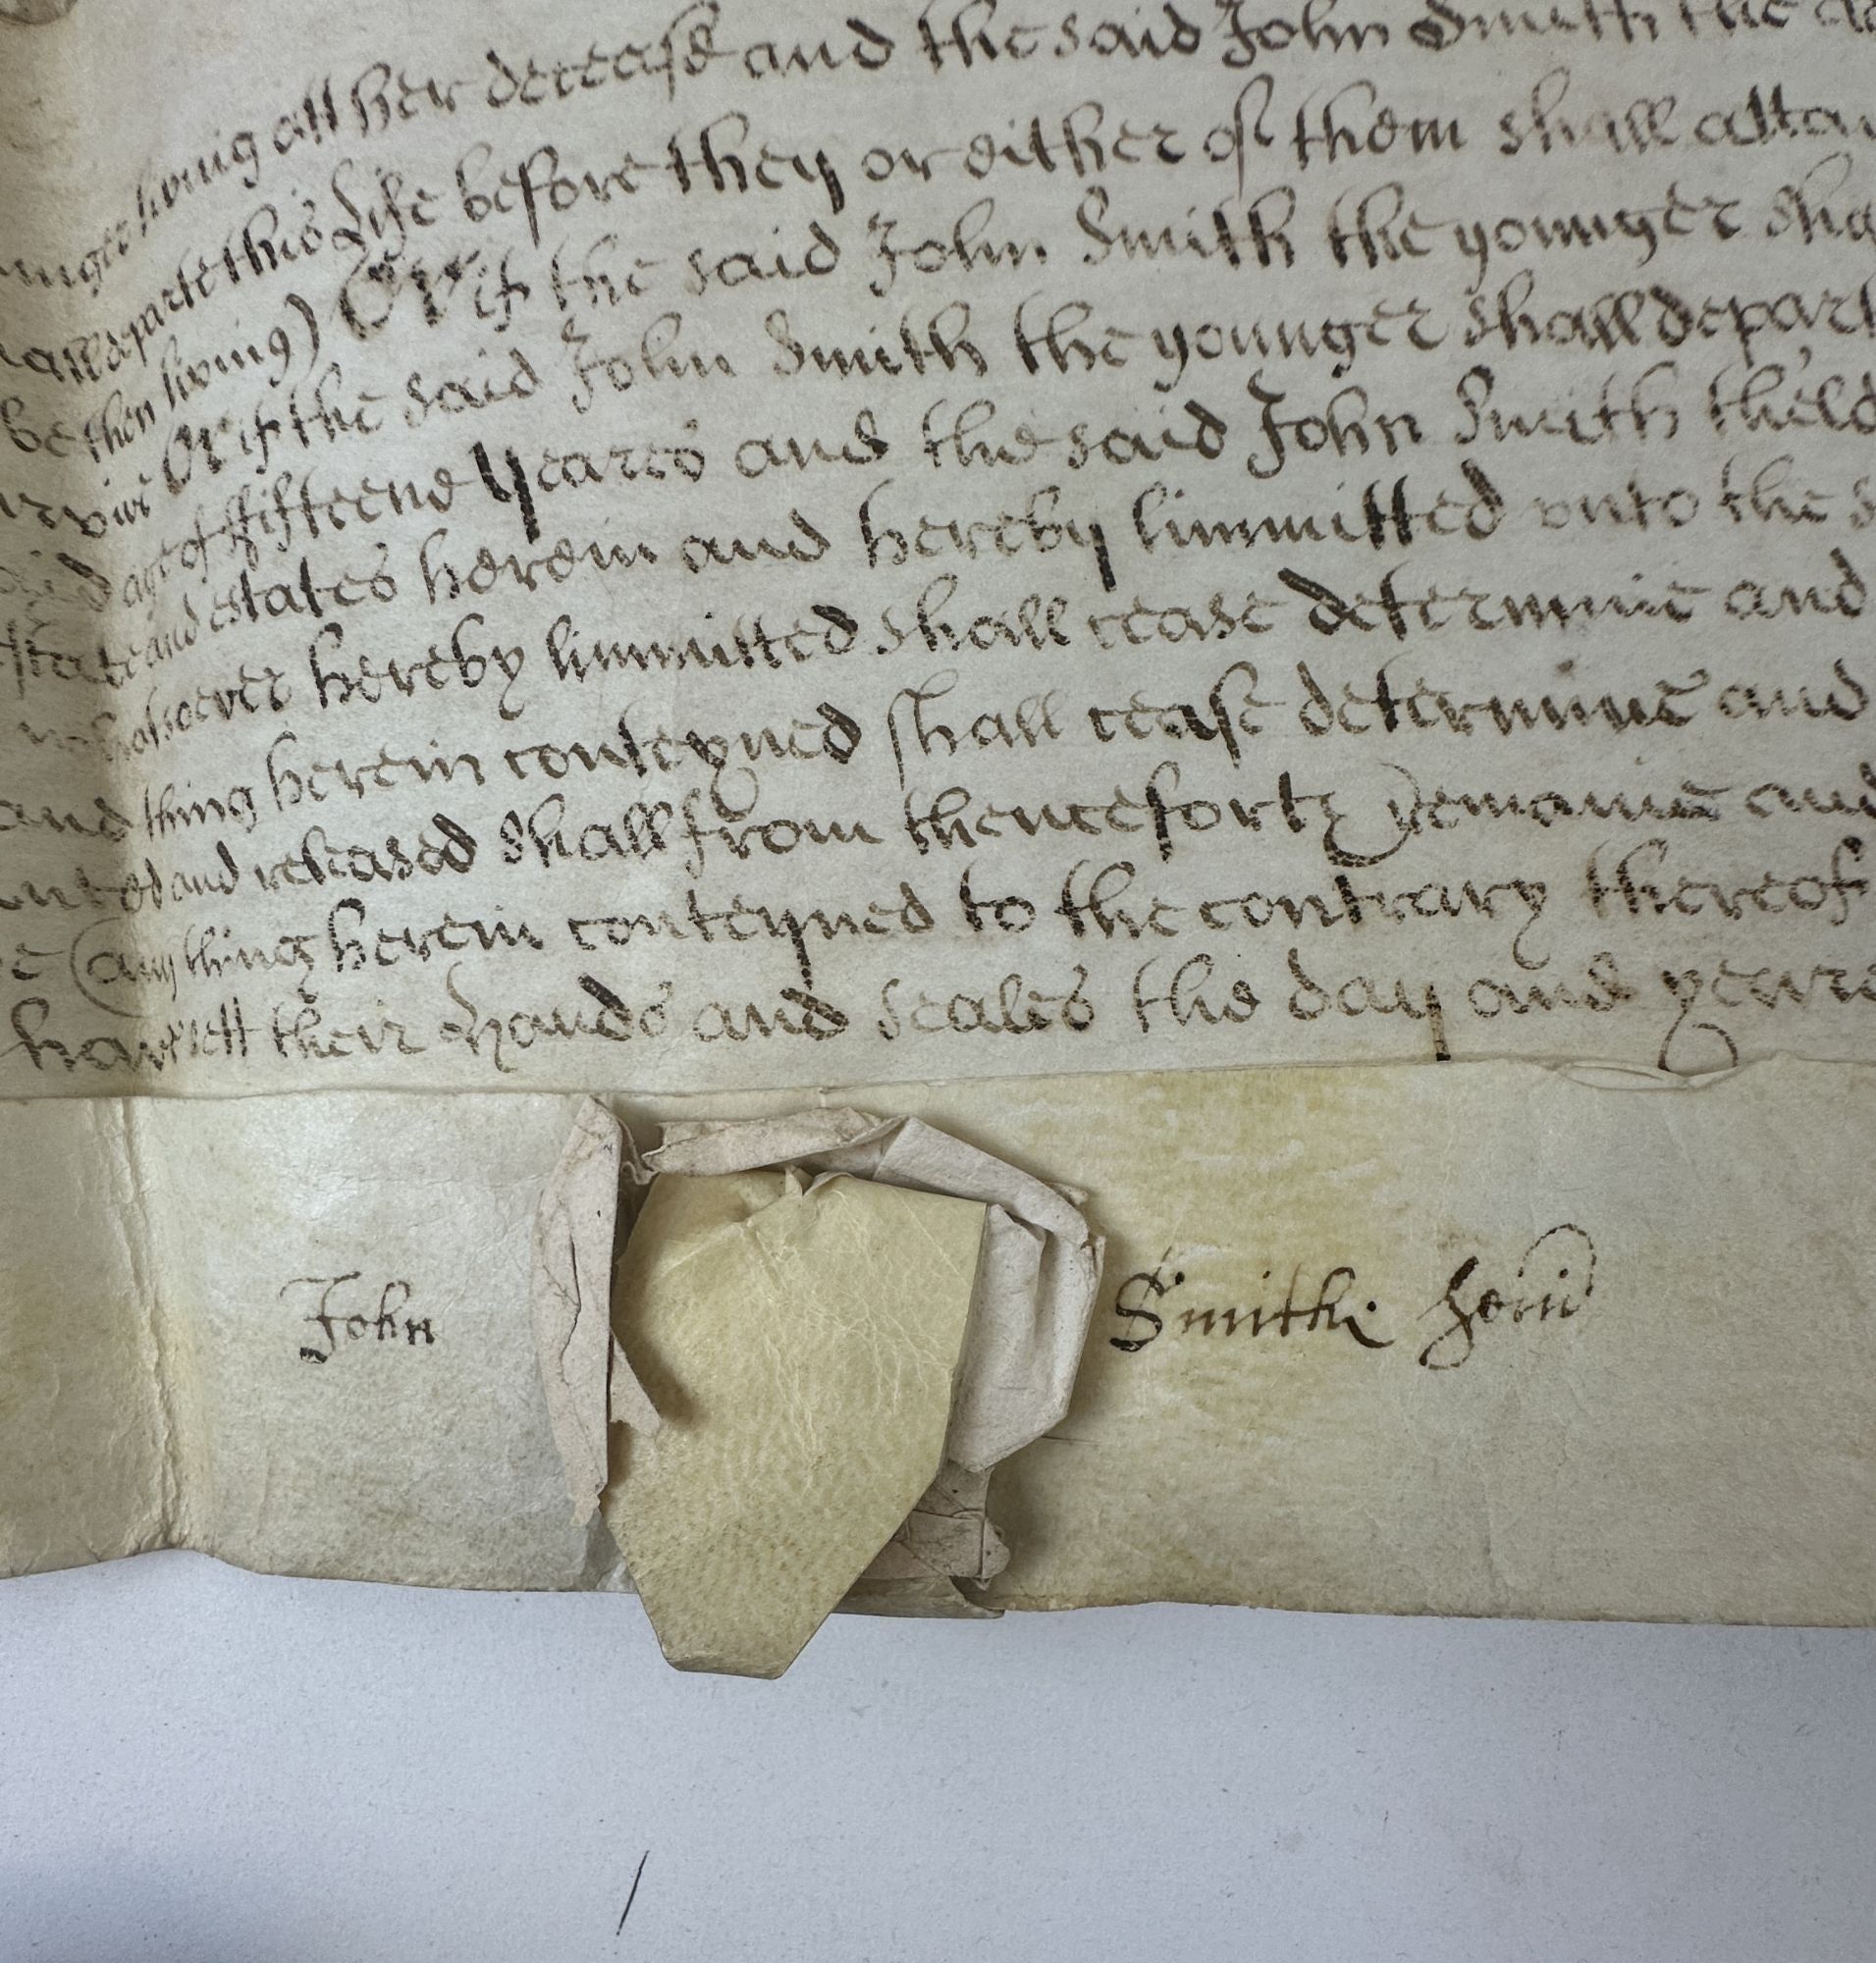 unger living att her decease and the said John Smith the
all departe this Life before they or either of them shall atta
be then living) Or if the said John Smith the younger sha
Or if the said John Smith the younger shall depart
age of ffifteene yeares and the said John Smith theld
state and estates herein and hereby limmitted unto the s
whatsoever hereby limmitted shall cease determine and
and thing herein conteyned shall cease determine and
anted and released shall from thenceforth Remaine and
e (any thing herein conteyned to the contrary thereof
have sett their Hands and Seales the day and yeare
John Smith